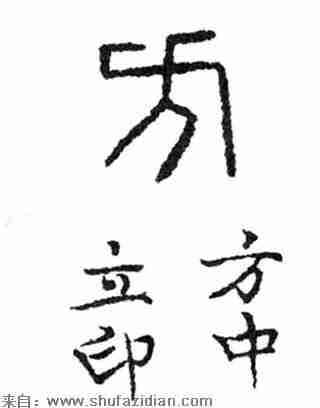 方
方中
立印
来自：www.shufazidian.com